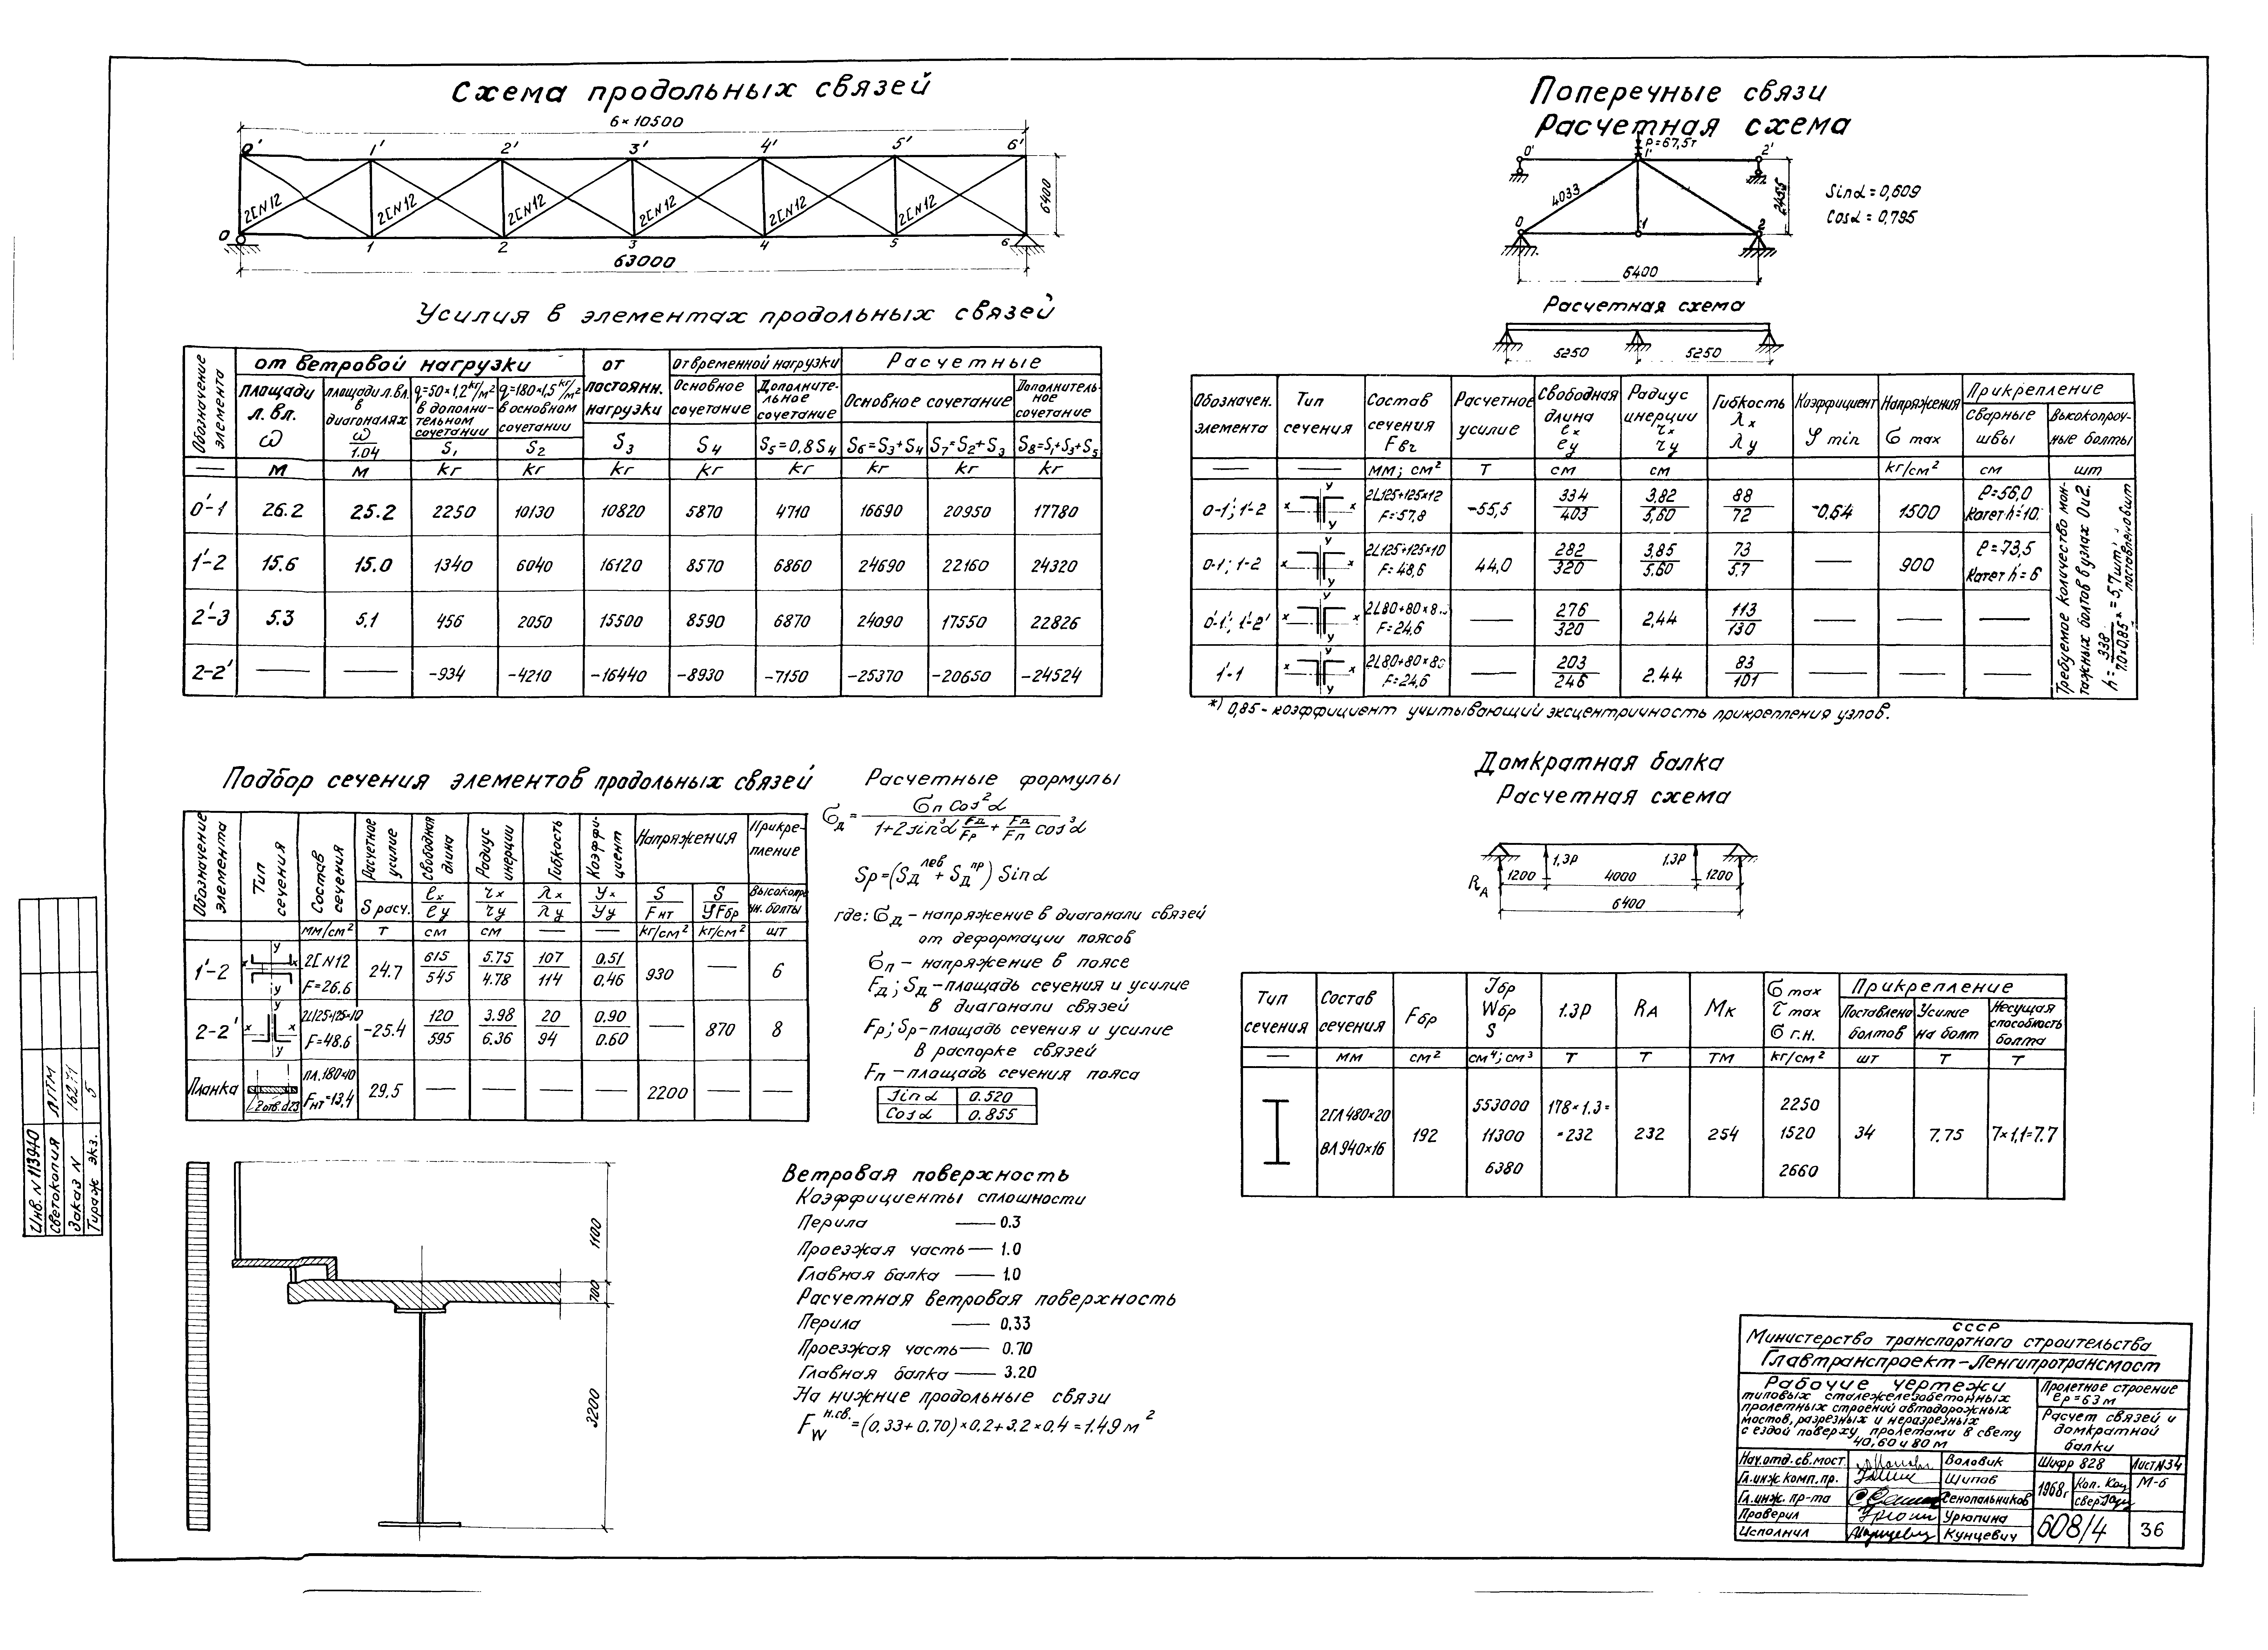 Схема продольных связей
6×10500
0' 1' 2' 3' 4' 5' 6'
2[N12 2[N12 2[N12 2[N12 2[N12 2[N12
6400
0 1 2 3 4 5 6
63000
Усилия в элементах продольных связей
Обозначение элемента
от ветровой нагрузки | от постоянн. нагрузки | от временной нагрузки | Расчетные
площади л.вл. ω | площади л.вл. в диагоналях ω/1.04 | q=50×1,2 кг/м² в дополнительном сочетании S₁ | q=180×1,5 кг/м² в основном сочетании S₂ | S₃ | Основное сочетание S₄ | Дополнительное сочетание S₅=0,8S₄ | Основное сочетание S₆=S₃+S₄ | S₇=S₂+S₃ | Дополнительное сочетание S₈=S₁+S₃+S₅
— | м | м | кг | кг | кг | кг | кг | кг | кг | кг
0'-1 | 26.2 | 25.2 | 2250 | 10130 | 10820 | 5870 | 4710 | 16690 | 20950 | 17780
1'-2 | 15.6 | 15.0 | 1340 | 6040 | 16120 | 8570 | 6860 | 24690 | 22160 | 24320
2'-3 | 5.3 | 5,1 | 456 | 2050 | 15500 | 8590 | 6870 | 24090 | 17550 | 22826
2-2' | — | — | -934 | -4210 | -16440 | -8930 | -7150 | -25370 | -20650 | -24524
Подбор сечения элементов продольных связей
Обозначение элемента | Тип сечения | Состав сечения | Расчетное усилие | Свободная длина | Радиус инерции | Гибкость | Коэффициент | Напряжения | Прикрепление
S расч. | ℓx/ℓy | rx/ry | λx/λy | φx/φy | S/Fнт | S/φFбр | Высокопрочн. болты
мм/см² | т | см | см | — | — | кг/см² | кг/см² | шт
1'-2 | 2[N12 F=26.6 | 24.7 | 615/545 | 5.75/4.78 | 107/114 | 0.51/0.46 | 930 | — | 6
2-2' | 2L125×125×10 F=48.6 | -25.4 | 120/595 | 3.98/6.36 | 20/94 | 0,90/0.60 | — | 870 | 8
Планка | 2 отв. d23 | пл.180×10 Fнт=13,4 | 29,5 | — | — | — | — | 2200 | — | —
Расчетные формулы
σд = σп Cos²α / (1+2sin³α Fд/Fр + Fд/Fп cos³α)
Sр=(Sд лев + Sд пр) Sinα
где: σд – напряжение в диагонали связей
от деформации поясов
σп – напряжение в поясе
Fд; Sд – площадь сечения и усилие
в диагонали связей
Fр; Sр – площадь сечения и усилие
в распорке связей
Fп – площадь сечения пояса
Sinα | 0.520
Cosα | 0.855
1100
700
3200
Ветровая поверхность
Коэффициенты сплошности
Перила — 0.3
Проезжая часть — 1.0
Главная балка — 1.0
Расчетная ветровая поверхность
Перила — 0,33
Проезжая часть — 0.70
Главная балка — 3.20
На нижние продольные связи
Fw н.св. = (0,33+0,70)×0,2+3,2×0,4=1.49 м²
Поперечные связи
Расчетная схема
P=67,5т
0' 1' 2'
4033
2455
0 1 2
6400
Sinα=0,609
Cosα=0,795
Расчетная схема
5250 5250
Обозначен. элемента | Тип сечения | Состав сечения Fбг | Расчетное усилие | Свободная длина ℓx ℓy | Радиус инерции rx ry | Гибкость λx λy | Коэффициент φ min | Напряжения σ max | Прикрепление
сварные швы | высокопрочные болты
— | — | мм; см² | т | см | см | кг/см² | см | шт
0-1'; 1'-2 | 2L125×125×12 F=57,8 | -55,5 | 334/403 | 3,82/5,60 | 88/72 | -0,64 | 1500 | ℓ=56,0 Катет h=10
0-1; 1-2 | 2L125×125×10 F=48,6 | 44,0 | 282/320 | 3,85/5.60 | 73/5,7 | — | 900 | ℓ=73,5 Катет h=6
0'-1'; 1'-2' | 2L80×80×8 F=24,6 | — | 276/320 | 2,44 | 113/130 | — | — | —
1'-1 | 2L80×80×8 F=24,6 | — | 203/246 | 2.44 | 83/101 | — | — | —
Требуемое количество монтажных болтов в узлах 0 и 2.
h = 338/7.0×0,85* = 5,7 шт; поставлено 6 шт
*) 0,85 - коэффициент учитывающий эксцентричность прикрепления узлов.
Домкратная балка
Расчетная схема
1,3P 1.3P
RA 1200 4000 1200
6400
Тип сечения | Состав сечения | Fбр | Jбр Wбр S | 1.3P | RA | Mк | σ max τ max σ г.н. | Прикрепление
Поставлено болтов | Усилие на болт | Несущая способность болта
— | мм | см² | см⁴; см³ | т | т | тм | кг/см² | шт | т | т
2ГЛ 480×20 ВЛ 940×16 | 192 | 553000 11300 6380 | 178×1.3= =232 | 232 | 254 | 2250 1520 2660 | 34 | 7.75 | 7×1,1=7.7
СССР
Министерство транспортного строительства
Главтранспроект-Ленгипротрансмост
Рабочие чертежи
типовых сталежелезобетонных
пролетных строений автодорожных
мостов, разрезных и неразрезных
с ездой поверху пролетами в свету
40, 60 и 80 м
Пролетное строение
ℓр=63 м
Расчет связей и
домкратной
балки
Нач.отд.св.мост. Воловик Шифр 828 Лист N34
Гл.инж.комп.пр. Щипав 1968г М-б
Гл.инж. пр-та
Проверил Урюпина 608/4 36
Исполнил Кунцевич
Инв. N 113940
Светокопия ЛГТМ
Заказ N
Тираж экз. 5